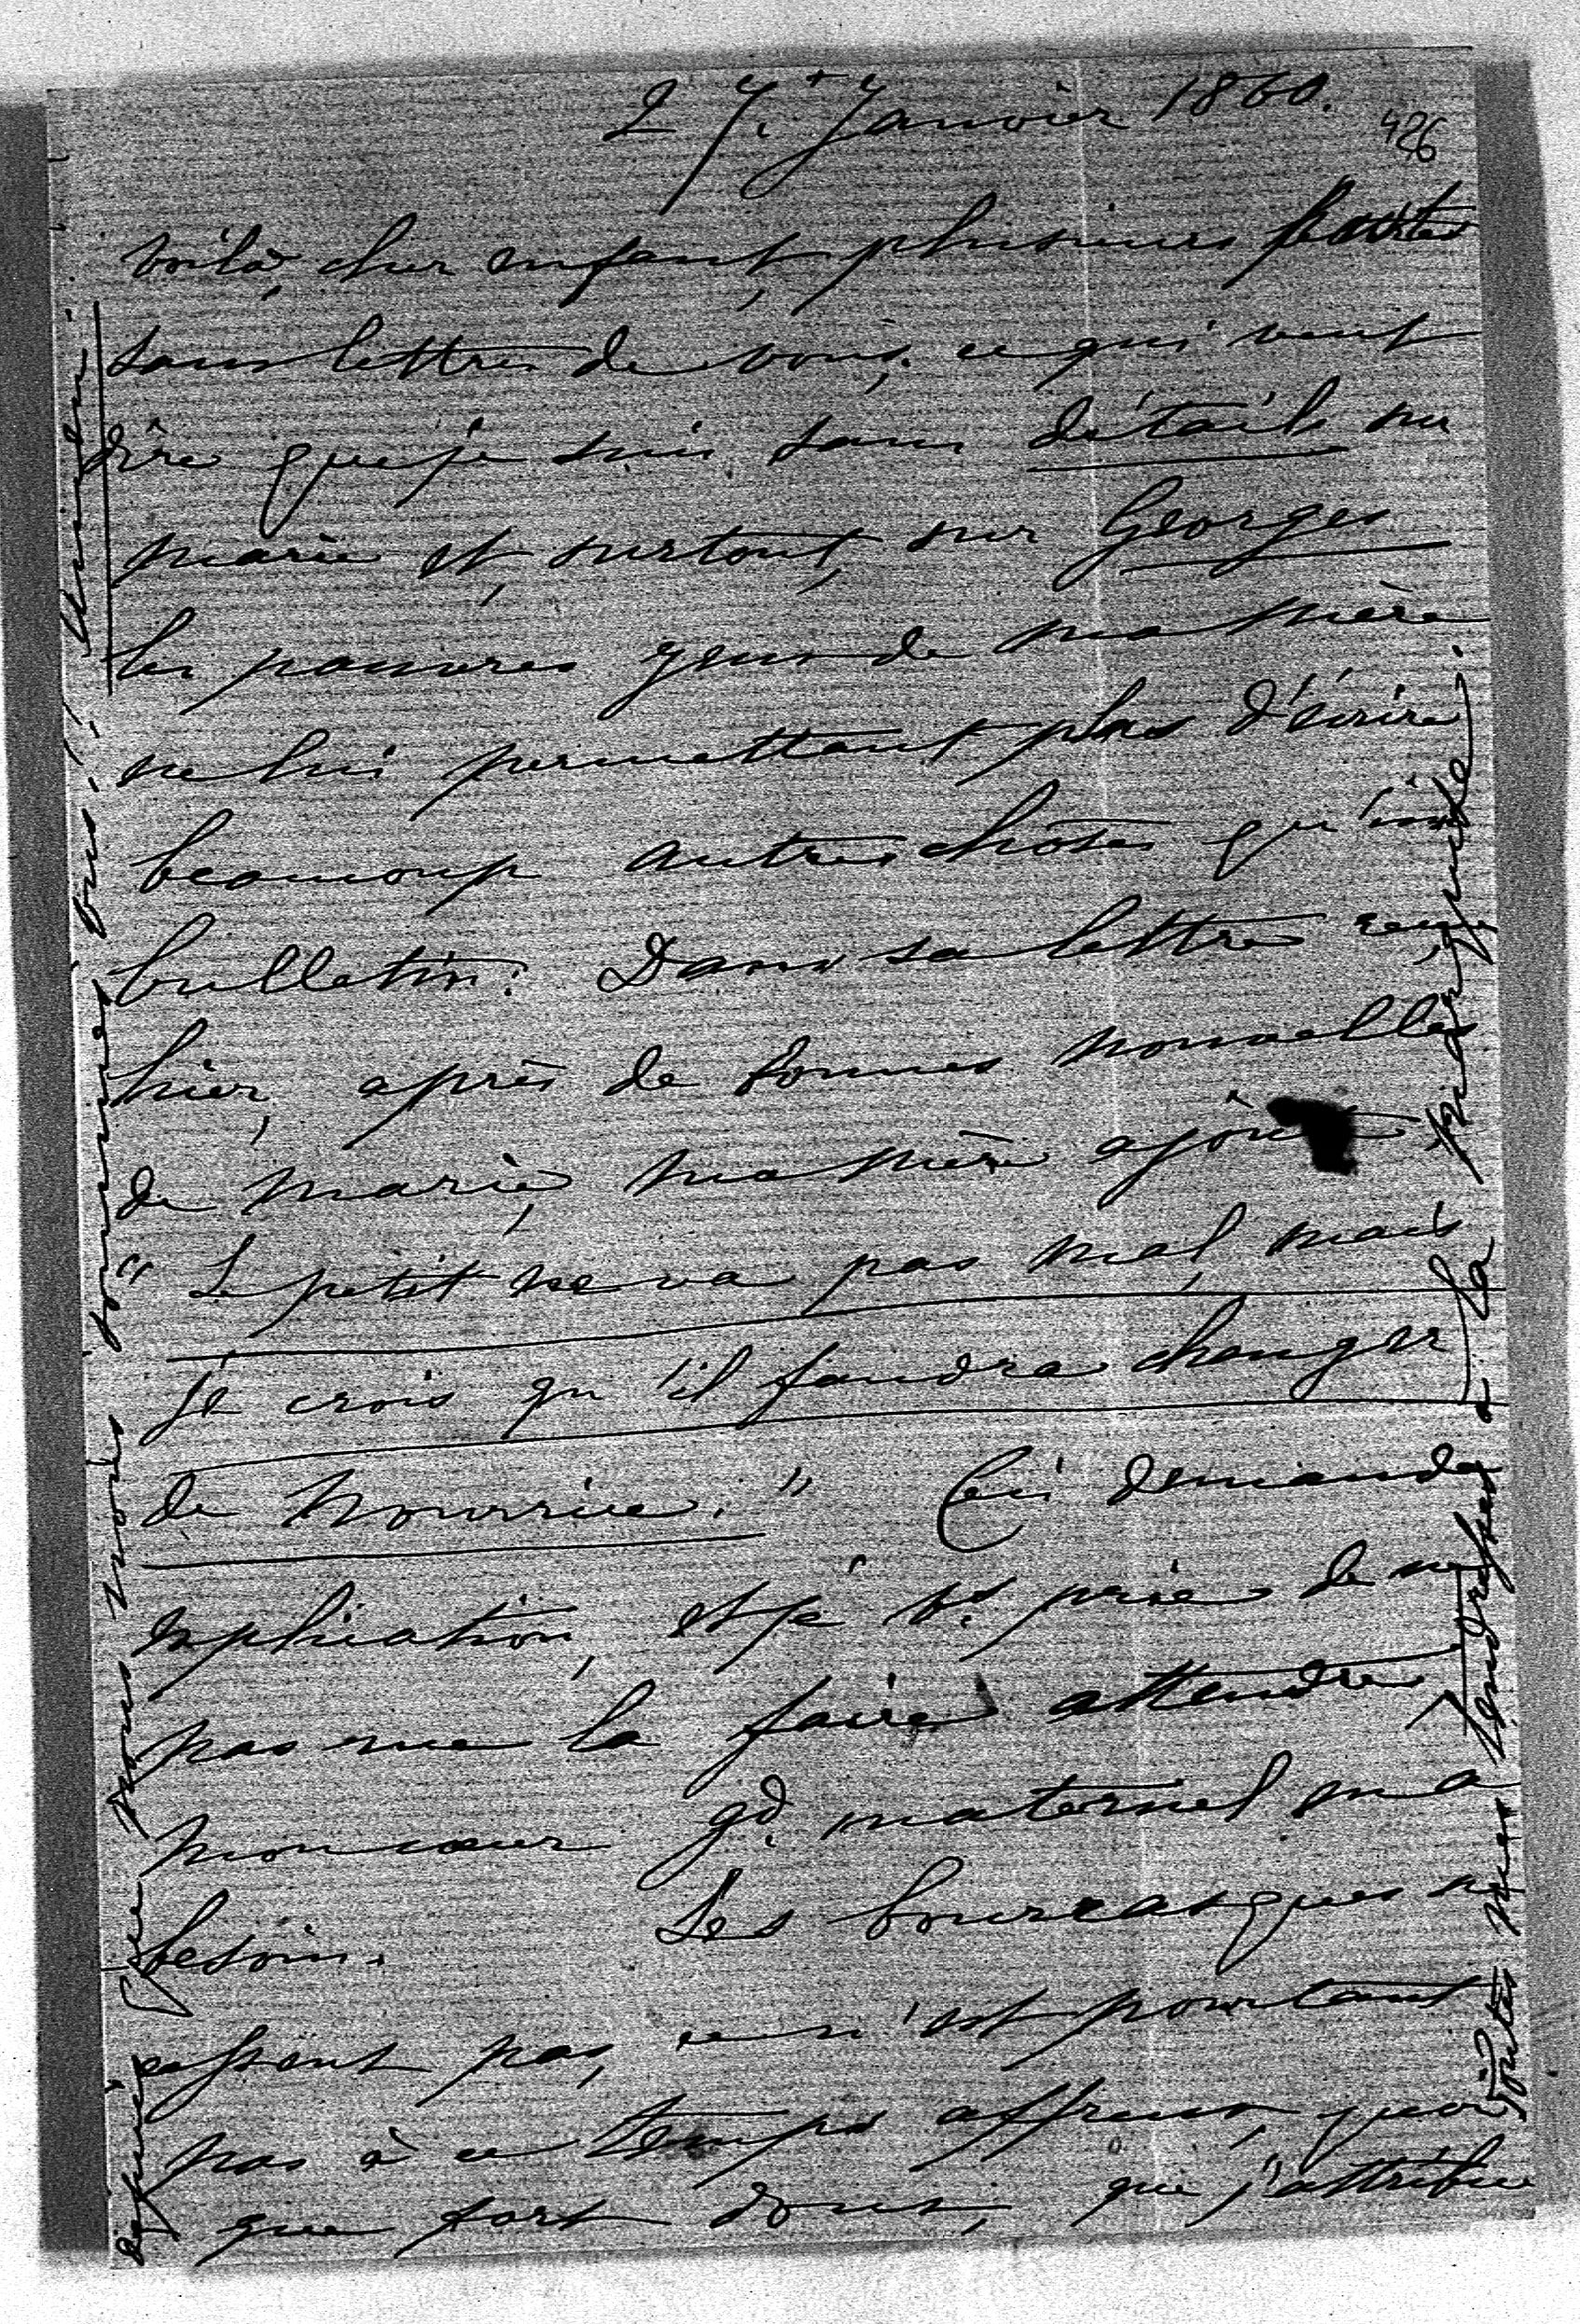 27. Janvier 1860.
426
voilà, cher enfant, plusieurs postes
sans lettres de vous; ce qui veut
dire que je suis sans détails sur
marie et, surtout, sur Georges
les pauvres yeux de ma mère
ne lui permettant plus d'écrire
beaucoup autres choses qu'un
bulletin. Dans sa lettre reçue
hier, après de bonnes nouvelles
de marie, ma mère ajoute
" Le petit ne va pas mal, mais
je crois qu'il faudra changer
de nourrice. " Ceci demande
explication, et je vs. prie de ne
pas me la faire attendre,
mon cœur gd. maternel en a
besoin. Les bourrasques ne
cessent pas, ce n'est pourtant
pas à ce temps affreux, quoi
que fort doux, que j'attribue
depuis que nous nous sommes vus!!
Tendresses à la